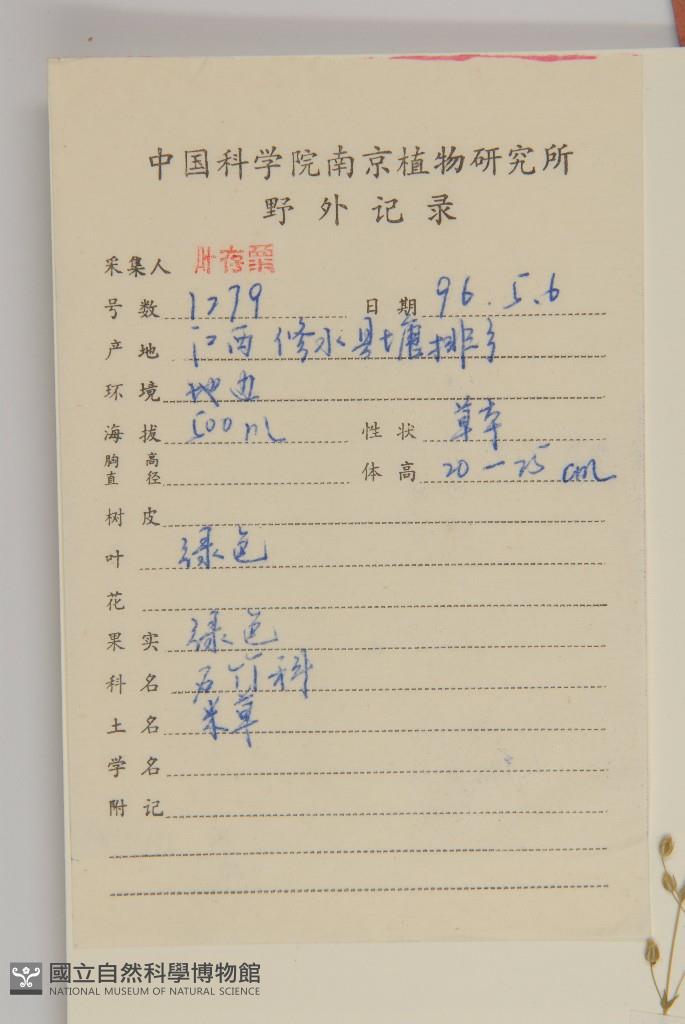 中国科学院南京植物研究所
野外记录
采集人 叶存粟
号数 1279 日期 96.5.6
产地 江西修水县塘排乡
环境 地边
海拔 500m 性状 草本
胸高直径 体高 20—25cm
树皮
叶 绿色
花
果实 绿色
科名 石竹科
土名 米草
学名
附记
國立自然科學博物館
NATIONAL MUSEUM OF NATURAL SCIENCE